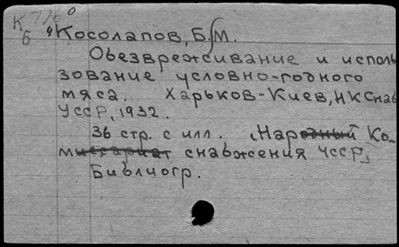 К 776
Б
Косолапов, Б. М.
Обезвреживание и исполь
зование условно-годного
мяса. Харьков-Киев, НКСнаб
УССР, 1932.
36 стр. с илл. (Народный Ко-
миссариат снабжения УССР)
Библиогр.